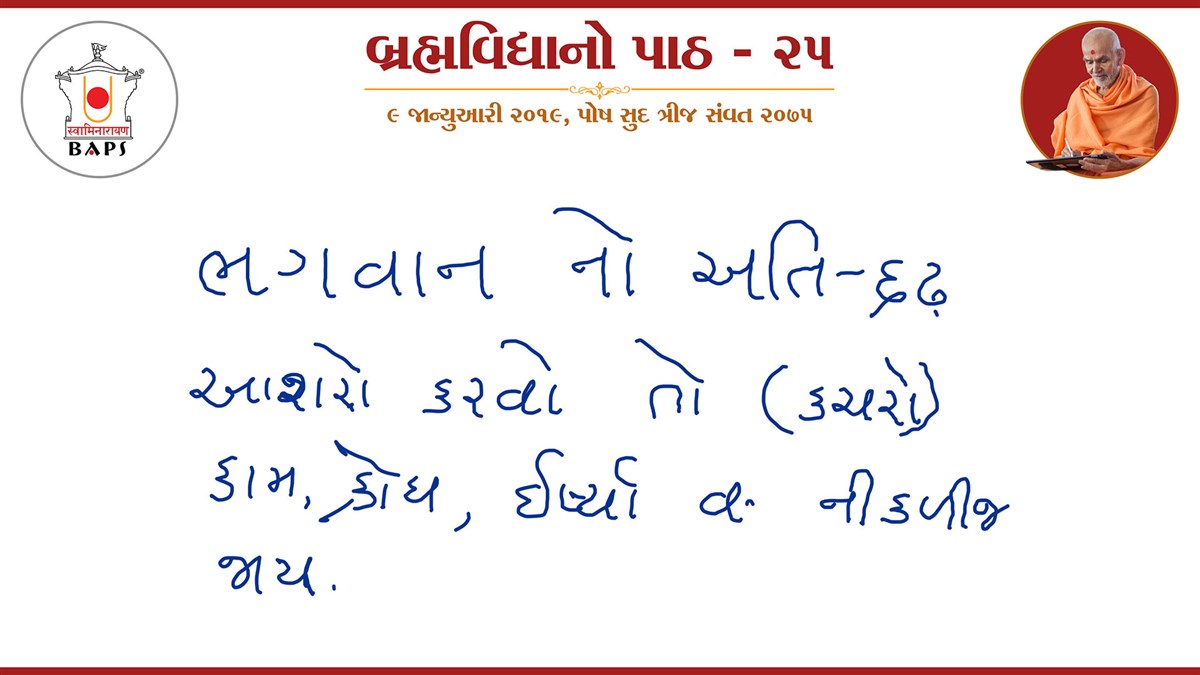 બ્રહ્મવિદ્યાનો પાઠ - ૨૫
૯ જાન્યુઆરી ૨૦૧૯, પોષ સુદ ત્રીજ સંવત ૨૦૭૫
स्वामिनारायण
BAPS
®
ભગવાન નો અતિ-દ્રઢ
આશરો કરવો તો (કચરો)
કામ, ક્રોધ, ઈર્ષ્યા વ. નીકળીજ
જાય.